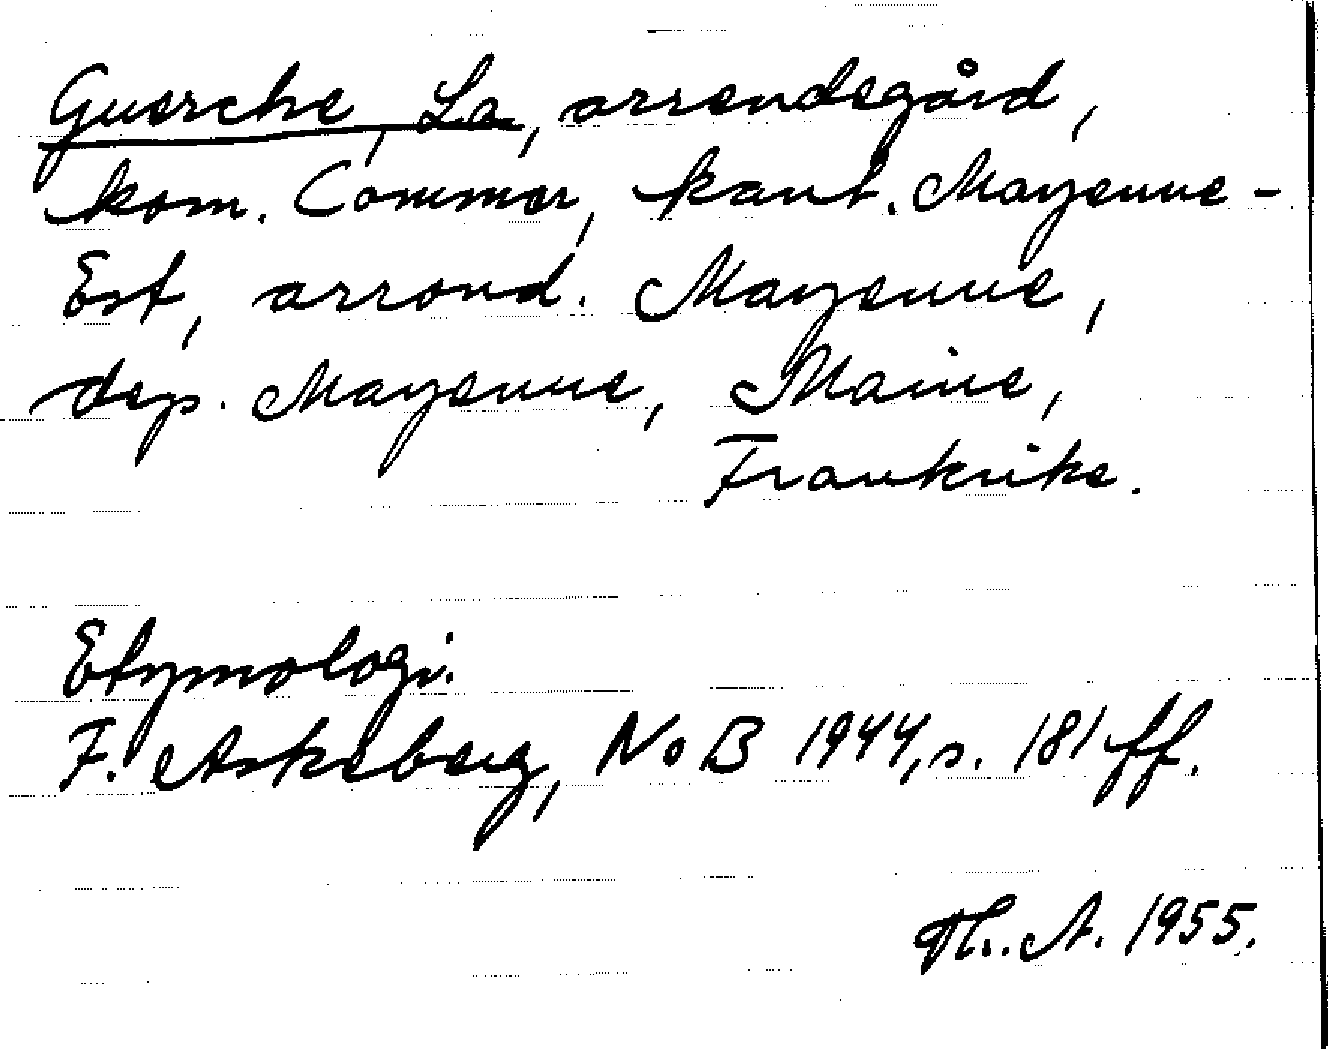 Guerche, La, arrendegård,
kom. Commer, kant. Mayenne-
Est, arrond. Mayenne,
dep. Mayenne, Maine,
Frankrike.
Etymologi.
F. Askeberg, NoB 1944, s. 181 ff.
Th. A. 1955.